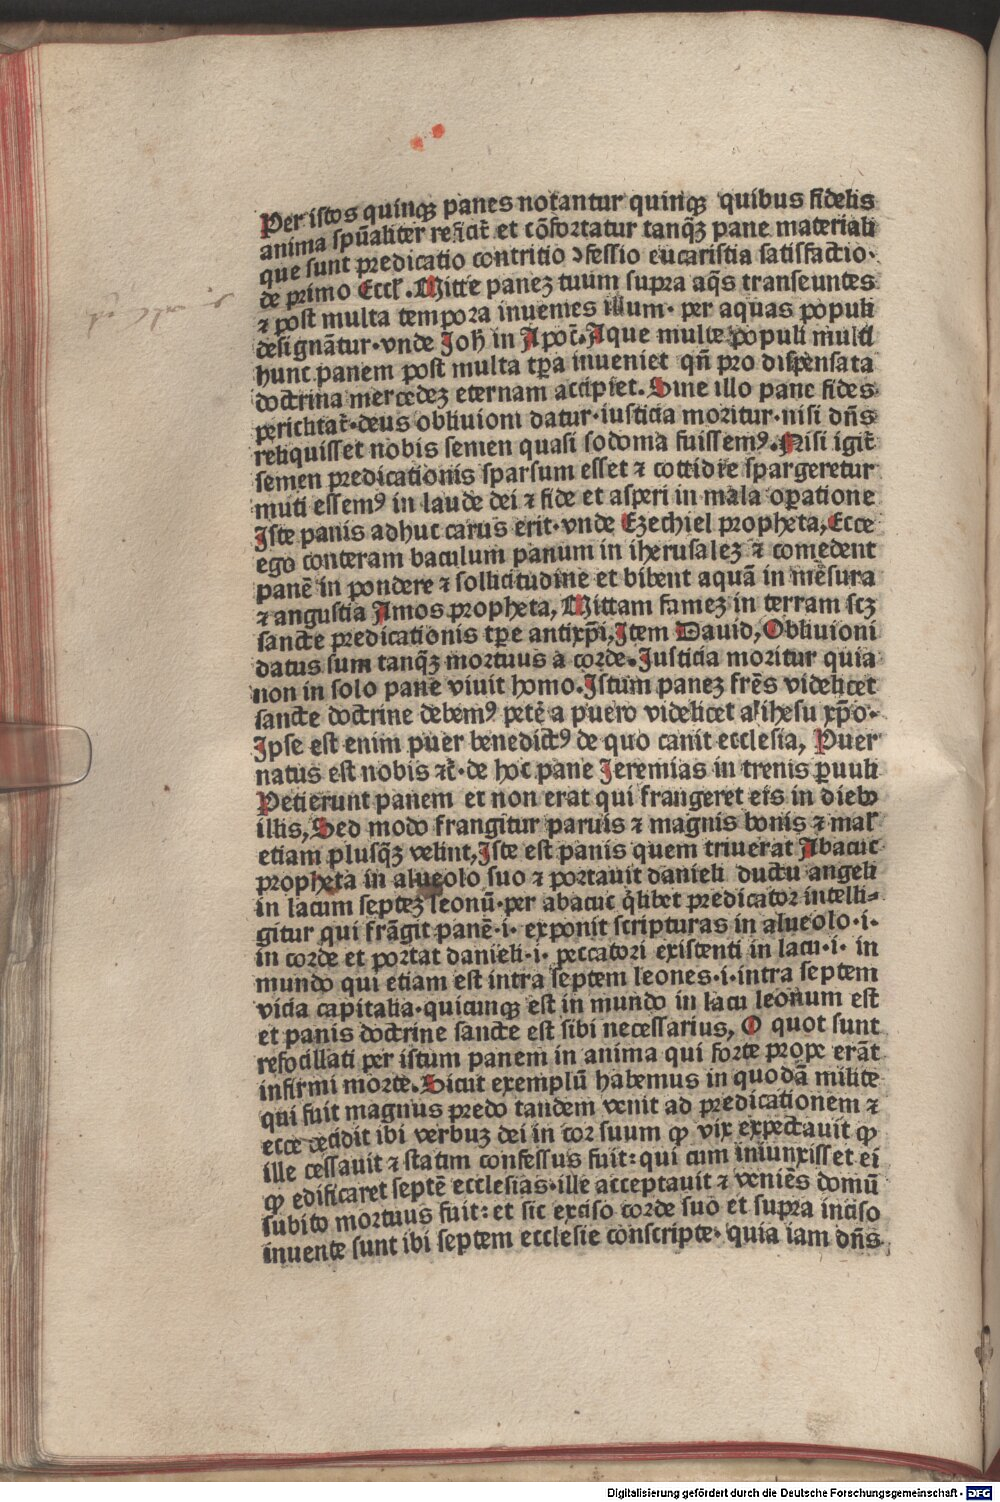 Per istos quinqꝫ panes notantur quinqꝫ quibus fidelis
anima spūaliter reficit̄ et cōfortatur tanqꝫ pane materiali
que sunt predicatio contritio ɔfessio eucaristia satisfactio·
de primo Eccl̄. Mitte panez tuum supra aq̄s transeuntes
⁊ post multa tempora inuenies illum· per aquas populi
designātur·vnde Joh̄ in Apoc̄·Aque multe populi multi
hunc panem post multa tp̄a inueniet qn̄ pro dispensata
doctrina mercedeꝫ eternam accipiet. Sine illo pane fides
periclitat̄·deus obliuioni datur·iusticia moritur·nisi dn̄s
reliquisset nobis semen quasi sodoma fuissemꝰ. Nisi igit̄
semen predicationis sparsum esset ⁊ cottidie spargeretur
muti essemꝰ in laude dei ⁊ fide et asperi in mala oꝑatione
Iste panis adhuc carus erit·vnde Ezechiel propheta, Ecce
ego conteram baculum panum in iherusaleꝫ ⁊ comedent
panē in pondere ⁊ sollicitudine et bibent aquā in mēsura
⁊ angustia Amos propheta, Mittam fameꝫ in terram scꝫ
sancte predicationis tꝑe antixp̄i, Item Dauid, Obliuioni
datus sum tanqꝫ mortuus a corde. Iusticia moritur quia
non in solo pane viuit homo. Istum paneꝫ fr̄es videlicet
sancte doctrine debemꝰ petē a puero videlicet a ihesu xp̄o·
Ipse est enim puer benedictꝰ de quo canit ecclesia, Puer
natus est nobis ⁊c̄·de hoc pane Jeremias in trenis ꝑuuli
Petierunt panem et non erat qui frangeret eis in diebꝫ
illis, Sed modo frangitur paruis ⁊ magnis bonis ⁊ mal̄
etiam plusqꝫ velint, Iste est panis quem triuerat Abacuc
propheta in alueolo suo ⁊ portauit danieli ductu angeli
in lacum septeꝫ leonū·per abacuc q̄libet predicator intelli-
gitur qui frāgit panē·i· exponit scripturas in alueolo·i·
in corde et portat danieli·i· peccatori existenti in lacu·i· in
mundo qui etiam est intra septem leones·i·intra septem
vicia capitalia·quicunqꝫ est in mundo in lacu leonum est
et panis doctrine sancte est sibi necessarius, O quot sunt
refocillati per istum panem in anima qui forte prope erāt
infirmi morte. Sicut exemplū habemus in quodā milite
qui fuit magnus predo tandem venit ad predicationem ⁊
ecce cecidit ibi verbuꝫ dei in cor suum ꝙ vix expectauit ꝙ
ille cessauit ⁊ statim confessus fuit: qui cum iniunxisset ei
ꝙ edificaret septē ecclesias·ille acceptauit ⁊ veniēs domū
subito mortuus fuit: et sic exciso corde suo et supra inciso
inuente sunt ibi septem ecclesie conscripte· quia iam dn̄s
Digitalisierung gefördert durch die Deutsche Forschungsgemeinschaft - DFG